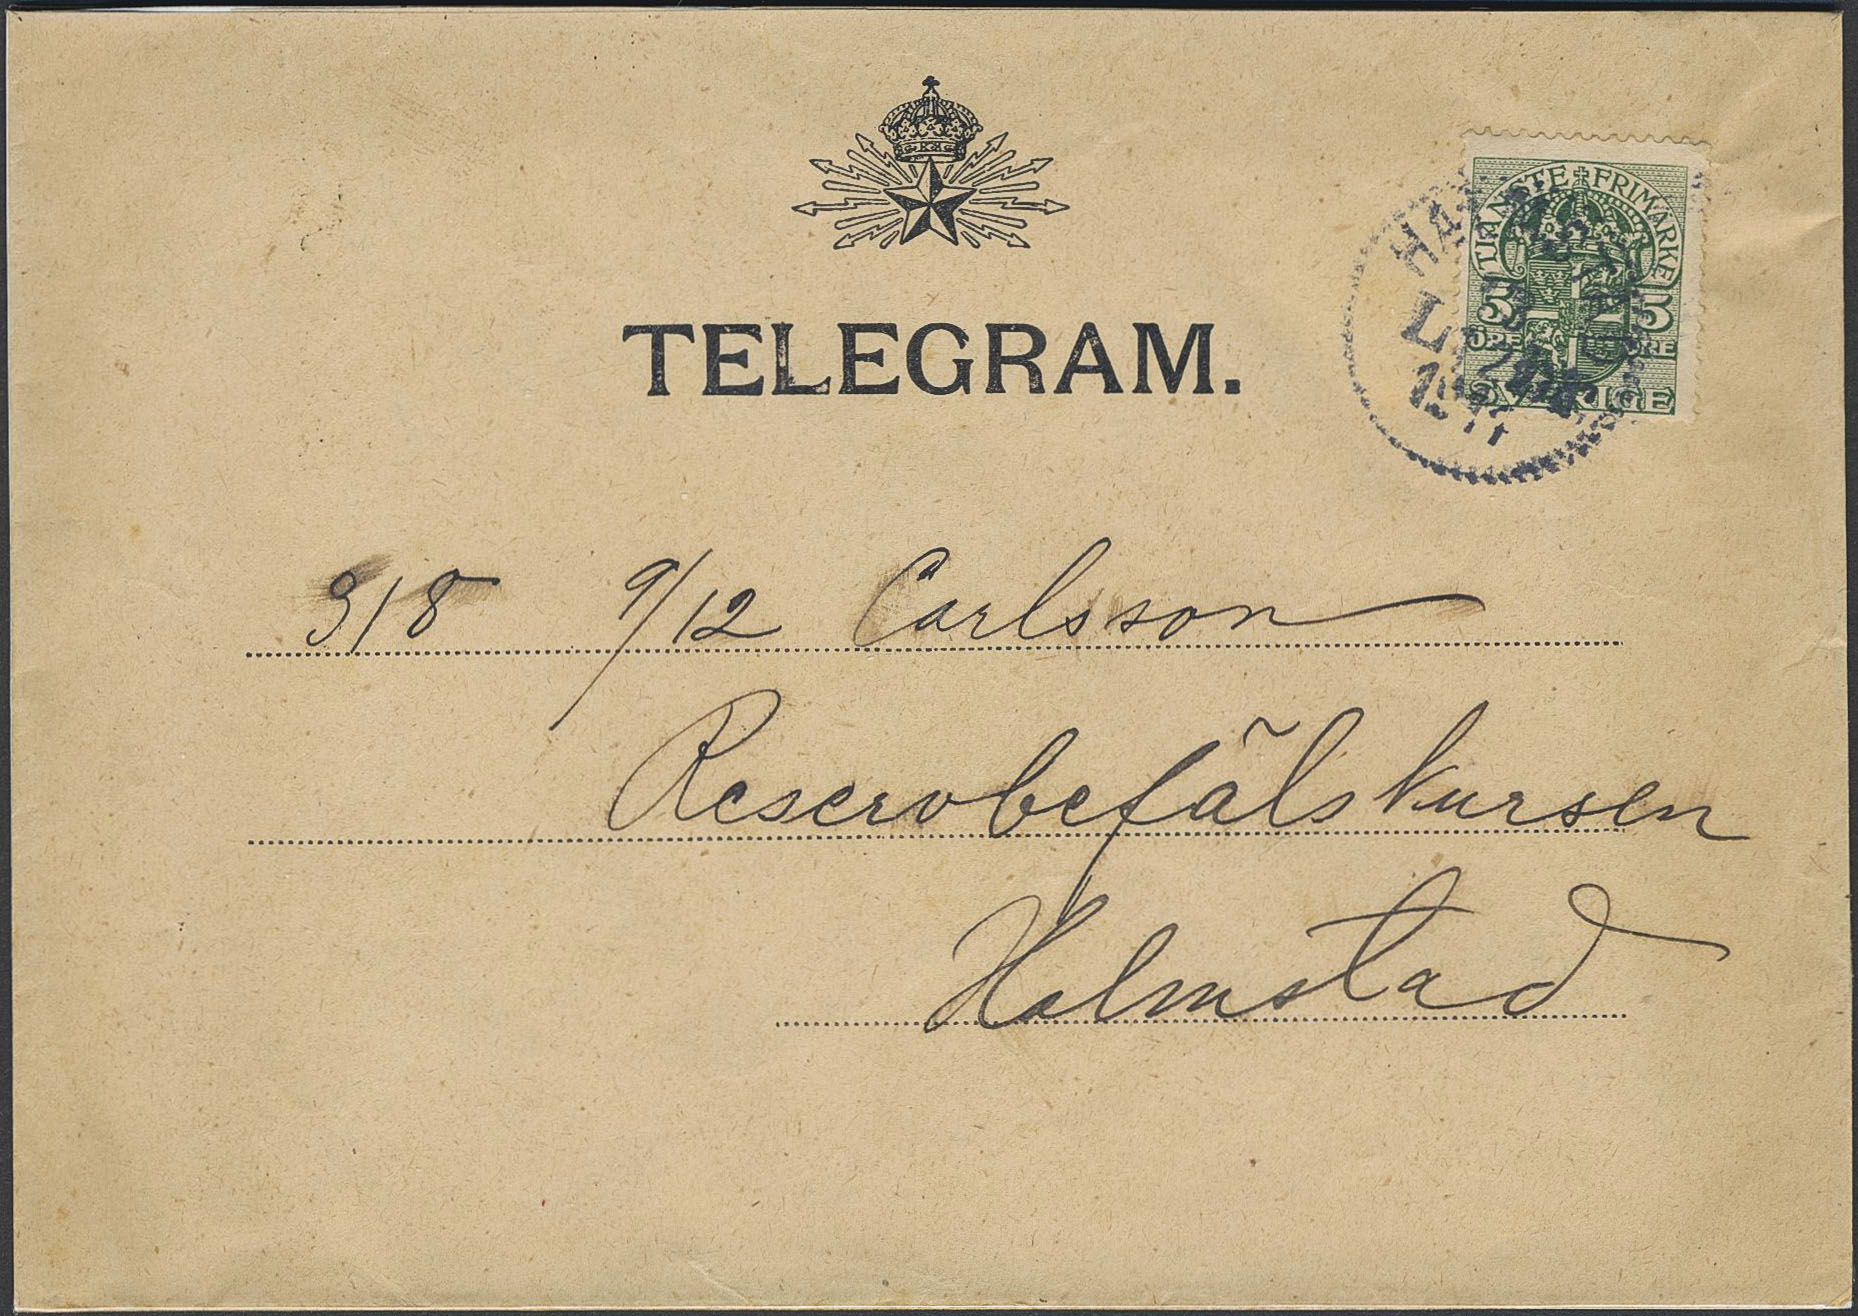 TJÄNSTE FRIMÄRKE
5 5
ÖRE ÖRE
SVERIGE
TELEGRAM.
318 9/12 Carlsson
Reservbefälskursen
Halmstad